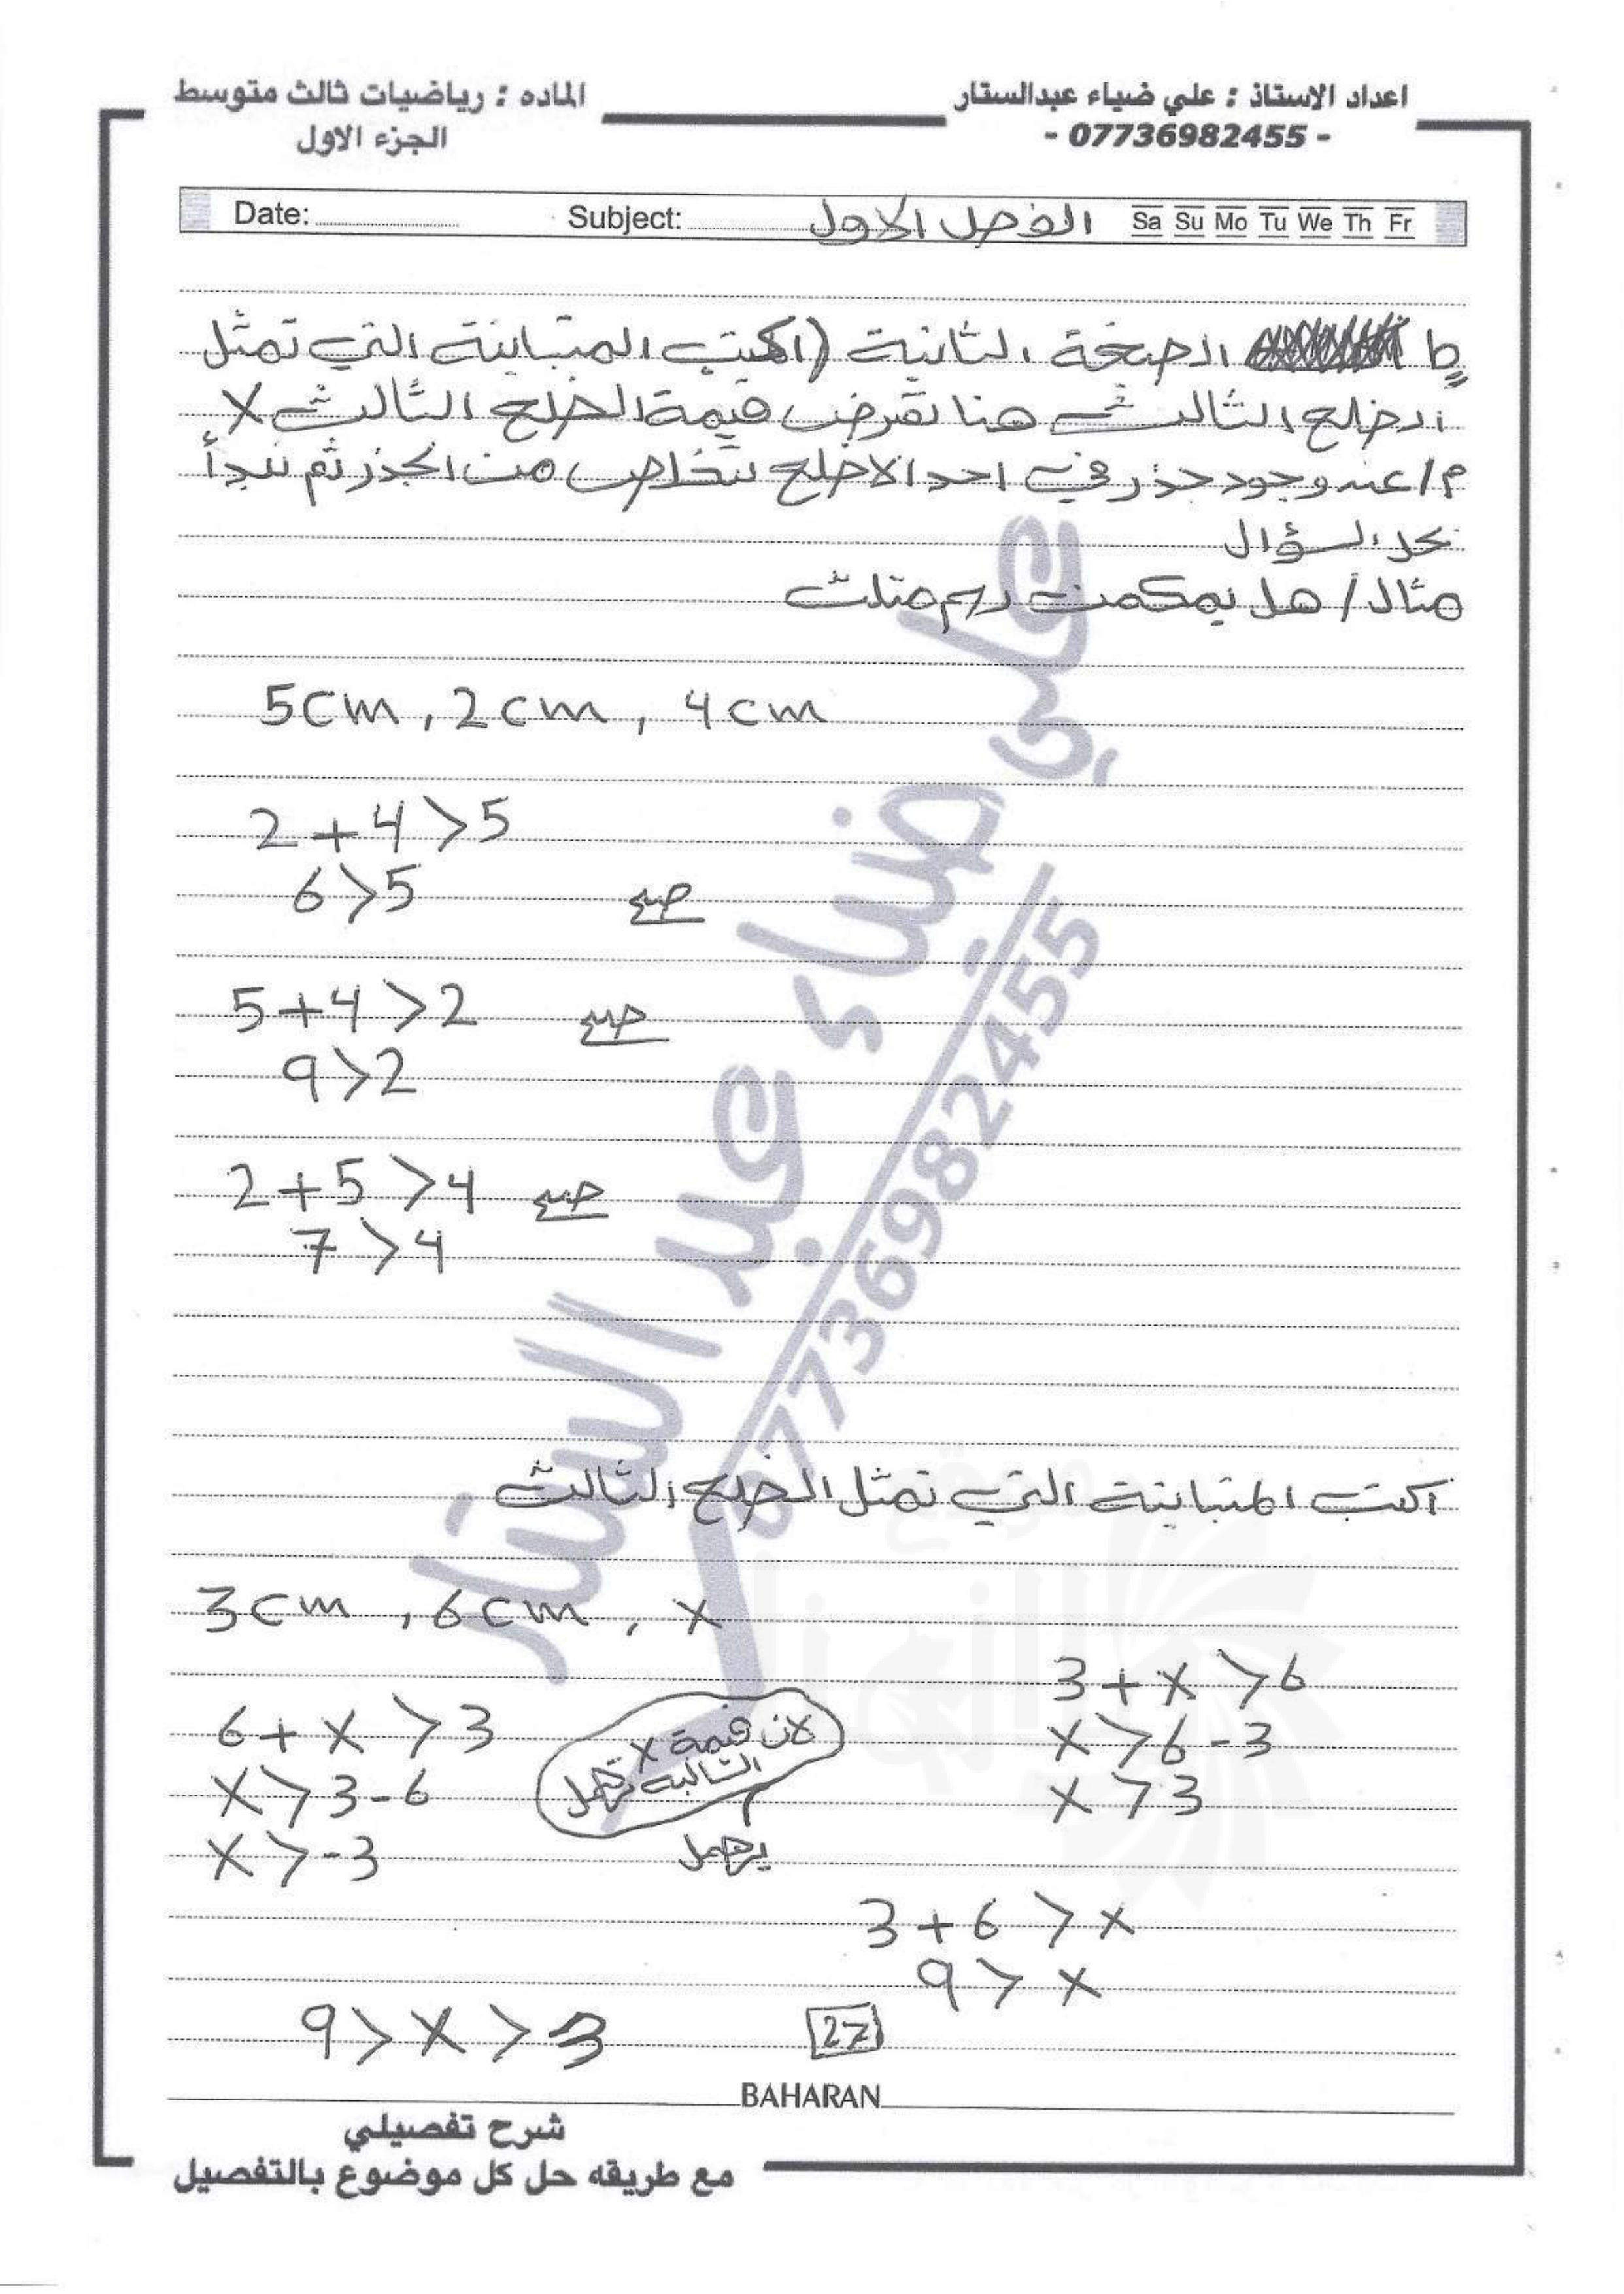 اعداد الاستاذ : علي ضياء عبدالستار
- 07736982455 -
الماده : رياضيات ثالث متوسط
الجزء الاول
Date: Subject: الفصل الاول Sa Su Mo Tu We Th Fr
ب الصيغة الثانية (اكتب المتباينة التي تمثل
الضلع الثالث هنا نفرض قيمة الضلع الثالث X
م/ عند وجود جذر في احد الاضلع نتخلص من الجذر ثم نبدأ
بحل السؤال
مثال/ هل يمكن رسم مثلث
5cm , 2cm , 4cm
2 + 4 > 5
6 > 5 صح
5 + 4 > 2 صح
9 > 2
2 + 5 > 4 صح
7 > 4
اكتب المتباينة التي تمثل الضلع الثالث
3cm , 6cm , X
3 + X > 6
X > 6 - 3
X > 3
6 + X > 3
X > 3 - 6
X > -3
لان قيمة X
السالبة تهمل
يهمل
3 + 6 > X
9 > X
9 > X > 3
27
BAHARAN
شرح تفصيلي
مع طريقه حل كل موضوع بالتفصيل
علي ضياء عبد الستار
07736982455